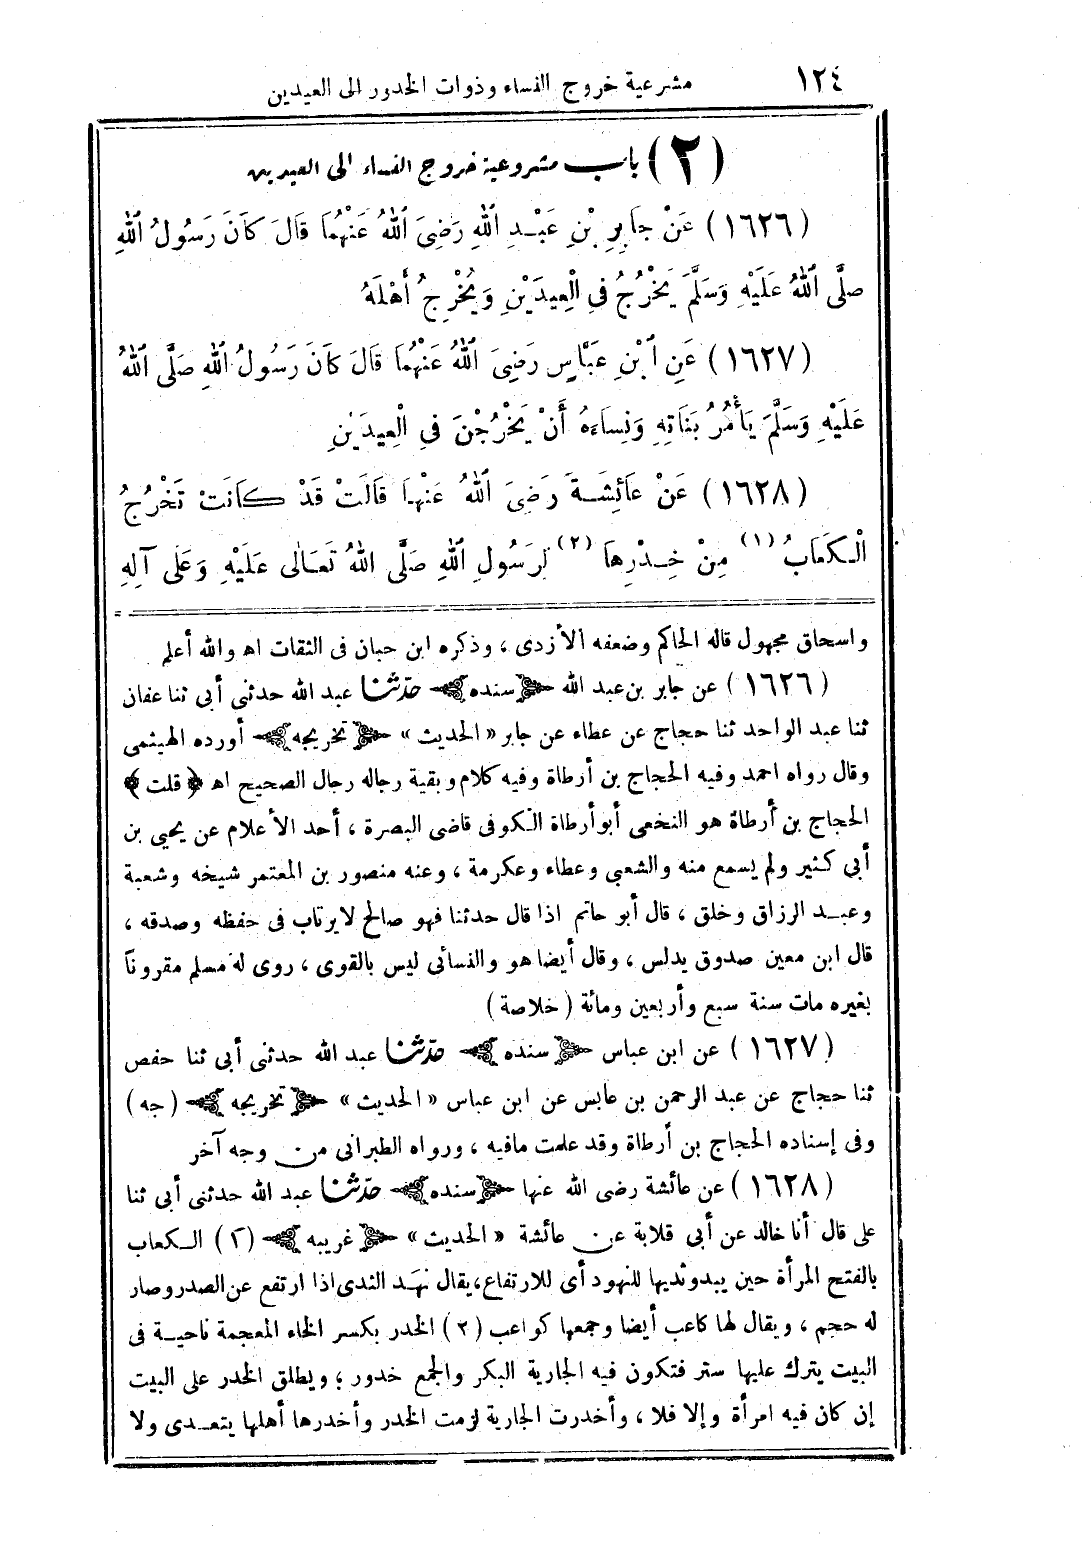 ١٢٤ مشرعية خروج النساء وذوات الخدور الى العيدين
(٢) باب مشروعية خروج النساء الى العيدين
(١٦٢٦) عَنْ جَابِرِ بْنِ عَبْدِ اللهِ رَضِيَ اللهُ عَنْهُمَا قَالَ كَانَ رَسُولُ اللهِ
صَلَّى اللهُ عَلَيْهِ وَسَلَّمَ يَخْرُجُ فِي الْعِيدَيْنِ وَيُخْرِجُ أَهْلَهُ
(١٦٢٧) عَنِ ابْنِ عَبَّاسٍ رَضِيَ اللهُ عَنْهُمَا قَالَ كَانَ رَسُولُ اللهِ صَلَّى اللهُ
عَلَيْهِ وَسَلَّمَ يَأْمُرُ بَنَاتِهِ وَنِسَاءَهُ أَنْ يَخْرُجْنَ فِي الْعِيدَيْنِ
(١٦٢٨) عَنْ عَائِشَةَ رَضِيَ اللهُ عَنْهَا قَالَتْ قَدْ كَانَتْ تَخْرُجُ
الْكَعَابُ (١) مِنْ خِدْرِهَا (٢) لِرَسُولِ اللهِ صَلَّى اللهُ تَعَالَى عَلَيْهِ وَعَلَى آلِهِ
واسحاق مجهول قاله الحاكم وضعفه الأزدى ، وذكره ابن حبان فى الثقات اه والله أعلم
(١٦٢٦) عن جابر بن عبد الله ﴿سنده﴾ حدّثنا عبد الله حدثنى أبى ثنا عفان
ثنا عبد الواحد ثنا حجاج عن عطاء عن جابر «الحديث» ﴿تخريجه﴾ أورده الهيثمى
وقال رواه احمد وفيه الحجاج بن أرطاة وفيه كلام وبقية رجاله رجال الصحيح اه ﴿قلت﴾
الحجاج بن أرطاة هو النخعى أبو أرطاة الكوفى قاضى البصرة ، أحد الأعلام عن يحيى بن
أبى كثير ولم يسمع منه والشعبي وعطاء وعكرمة ، وعنه منصور بن المعتمر شيخه وشعبة
وعبد الرزاق وخلق ، قال أبو حاتم اذا قال حدثنا فهو صالح لا يرتاب فى حفظه وصدقه ،
قال ابن معين صدوق يدلس ، وقال أيضا هو والنسائى ليس بالقوى ، روى له مسلم مقرونا
بغيره مات سنة سبع وأربعين ومائة (خلاصة)
(١٦٢٧) عن ابن عباس ﴿سنده﴾ حدّثنا عبد الله حدثنى أبى ثنا حفص
ثنا حجاج عن عبد الرحمن بن عابس عن ابن عباس «الحديث» ﴿تخريجه﴾ (جه)
وفى إسناده الحجاج بن أرطاة وقد علمت مافيه ، ورواه الطبرانى من وجه آخر
(١٦٢٨) عن عائشة رضى الله عنها ﴿سنده﴾ حدّثنا عبد الله حدثنى أبى ثنا
على قال أنا خالد عن أبى قلابة عن عائشة «الحديث» ﴿غريبه﴾ (٢) الكعاب
بالفتح المرأة حين يبدو ثديها للنهود أى للارتفاع، يقال نهد الثدى اذا ارتفع عن الصدر وصار
له حجم ، ويقال لها كاعب أيضا وجمعها كواعب (٢) الخدر بكسر الخاء المعجمة ناحية فى
البيت يترك عليها ستر فتكون فيه الجارية البكر والجمع خدور ؛ ويطلق الخدر على البيت
إن كان فيه امرأة وإلا فلا ، وأخدرت الجارية لزمت الخدر وأخدرها أهلها يتعدى ولا